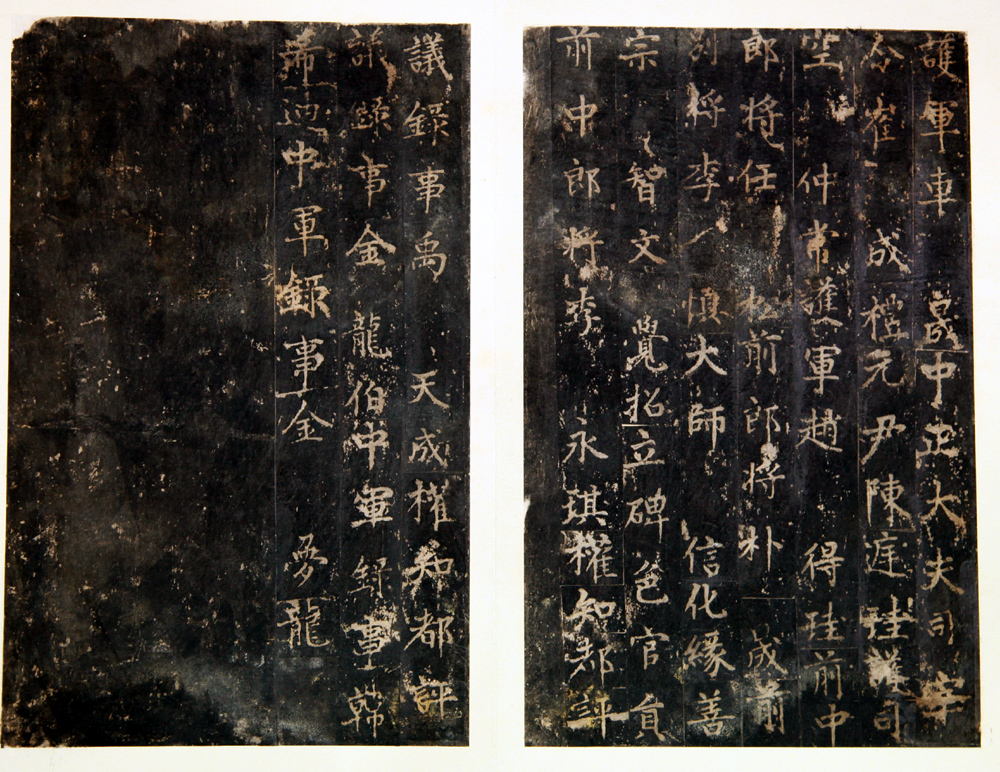 護軍車 晟中正大夫司宰
令崔 成禮元尹陳遳珪護司
空 仲常護軍趙 得珪前中
郎將任 松前郎將朴 成前
別將李 慎大師 信化緣善
宗 智文 覺招立碑邑官貟
前中郎將李 永琪權知都評
議錄事禹 天成權知都評
議錄事金 龍伯中軍錄事韓
希迪中軍錄事全 夢龍